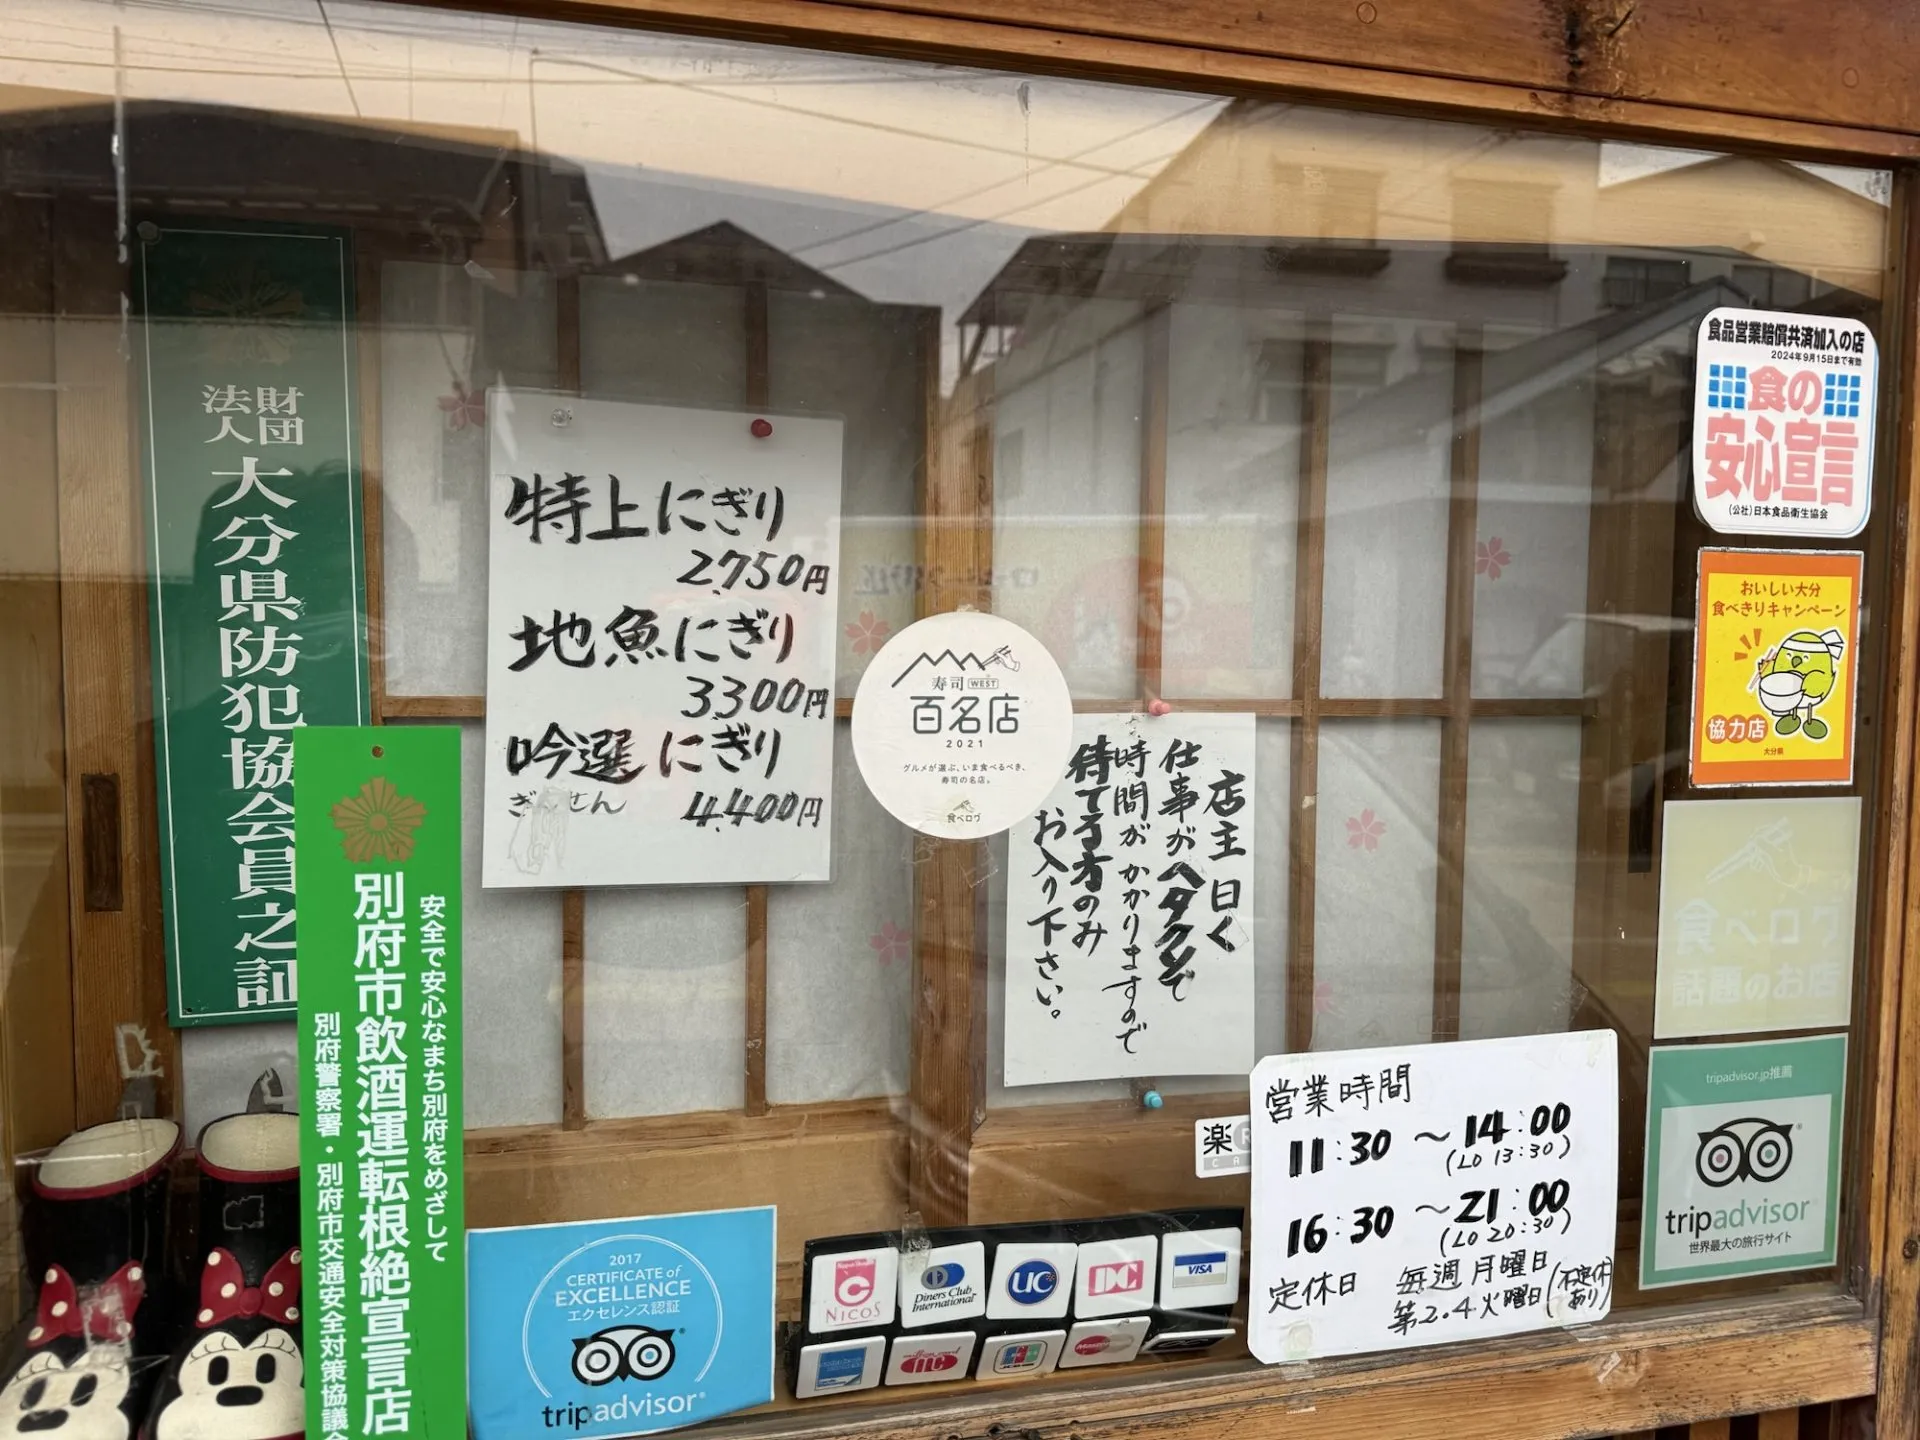 財団
法人
大分県防犯協会員之証
安全で安心なまち別府をめざして
別府市飲酒運転根絶宣言店
別府警察署・別府市交通安全対策協議会
特上にぎり
2,750円
地魚にぎり
3300円
吟選にぎり
ぎんせん
4,400円
寿司 WEST
百名店
2021
グルメが選ぶ、いま食べるべき、
寿司の名店。
食べログ
店主曰く
仕事がヘタクソで
時間がかかりますので
待てる方のみ
お入り下さい。
営業時間
11:30 ～ 14:00
(LO 13:30)
16:30 ～ 21:00
(LO 20:30)
定休日 毎週月曜日
第2.4火曜日(不定休あり)
食品営業賠償共済加入の店
2024年9月15日まで有効
食の
安心宣言
(公社)日本食品衛生協会
おいしい大分
食べきりキャンペーン
協力店
大分県
食べログ
話題のお店
tripadvisor.jp推薦
tripadvisor®
世界最大の旅行サイト
2017
CERTIFICATE of
EXCELLENCE
エクセレンス認証
tripadvisor®
NICOS
Diners Club
International
UC
DC
VISA
JCB
楽